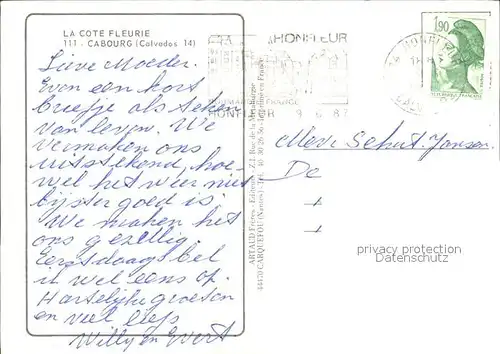 LA COTE FLEURIE
111 - CABOURG (Calvados 14)
Lieve Moeder.
Even een kort
briefje als teken
van leven. We
vermaken ons
uitstekend, hoe-
wel het weer niet
bijster goed is.
We maken het
ons gezellig.
Eerstdaags bel
ik wel eens op.
Hartelijke groeten
en veel liefs
Willy en Evert
HONFLEUR
HONFLEUR 9.6.87
ARTAUD Frères - Editeurs - Z.I. Rue de la Métallurgie
44470 CARQUEFOU (Nantes) - Tél. 40 30 26 36 - Imprimé en France
1,90
Mevr Schut-Jansen.
De
privacy protection
Datenschutz